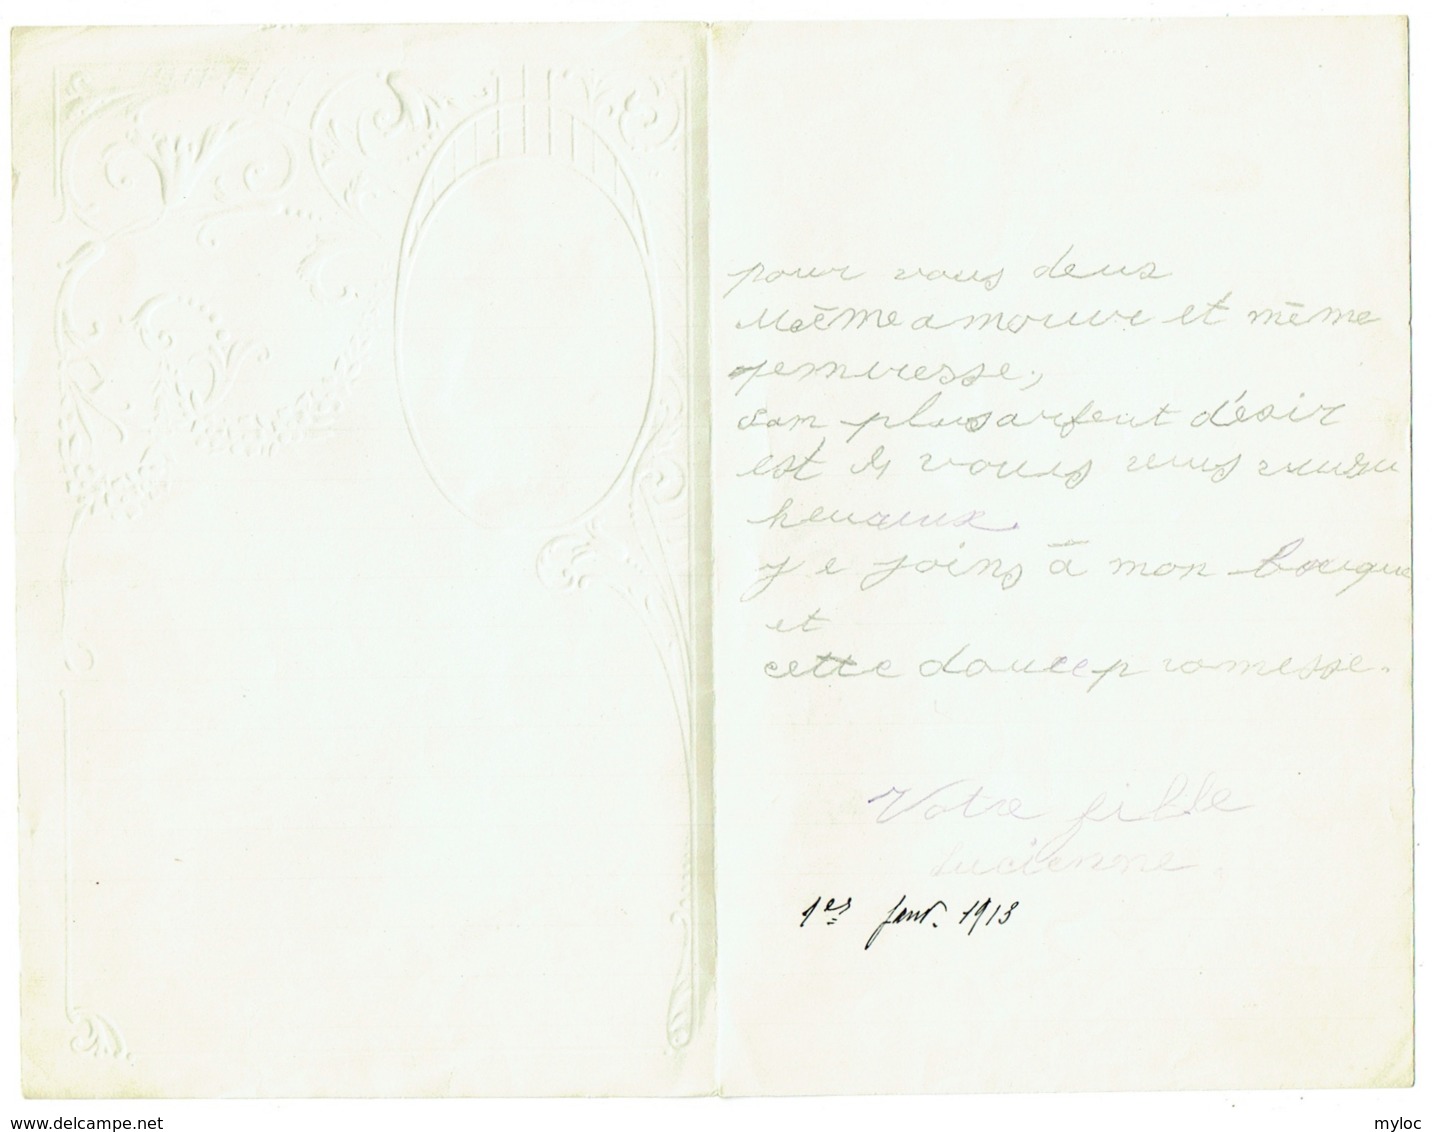 pour vous deux
Même amoure et même
temdresse,
son plus arfent désir
est de vous
heureux.
Je joins à mon bouque
et
cette douce promesse.
Votre fille
Lucienne
1er Janv. 1913
www.delcampe.net
myloc